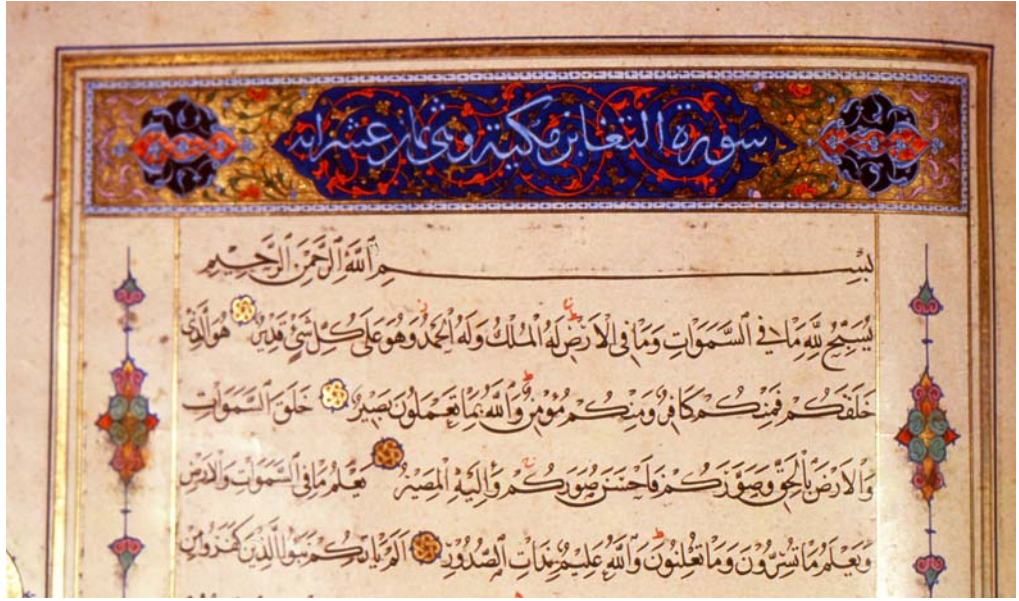 سورة التغابن مكية وهي ثمان عشر اية
بِسْمِ ٱللَّهِ ٱلرَّحْمَٰنِ ٱلرَّحِيمِ
يُسَبِّحُ لِلَّهِ مَا فِي ٱلسَّمَوَاتِ وَمَا فِي ٱلْاَرْضِ لَهُ ٱلْمُلْكُ وَلَهُ ٱلْحَمْدُ وَهُوَ عَلَى كُلِّ شَيْءٍ قَدِيرٌ هُوَ ٱلَّذِي
خَلَقَكُمْ فَمِنْكُمْ كَافِرٌ وَمِنْكُمْ مُؤْمِنٌ وَٱللَّهُ بِمَا تَعْمَلُونَ بَصِيرٌ خَلَقَ ٱلسَّمَوَاتِ
وَٱلْاَرْضَ بِٱلْحَقِّ وَصَوَّرَكُمْ فَاَحْسَنَ صُوَرَكُمْ وَاِلَيْهِ ٱلْمَصِيرُ يَعْلَمُ مَا فِي ٱلسَّمَوَاتِ وَٱلْاَرْضِ
وَيَعْلَمُ مَا تُسِرُّونَ وَمَا تُعْلِنُونَ وَٱللَّهُ عَلِيمٌ بِذَاتِ ٱلصُّدُورِ اَلَمْ يَاْتِكُمْ نَبَؤُا ٱلَّذِينَ كَفَرُوا مِنْ